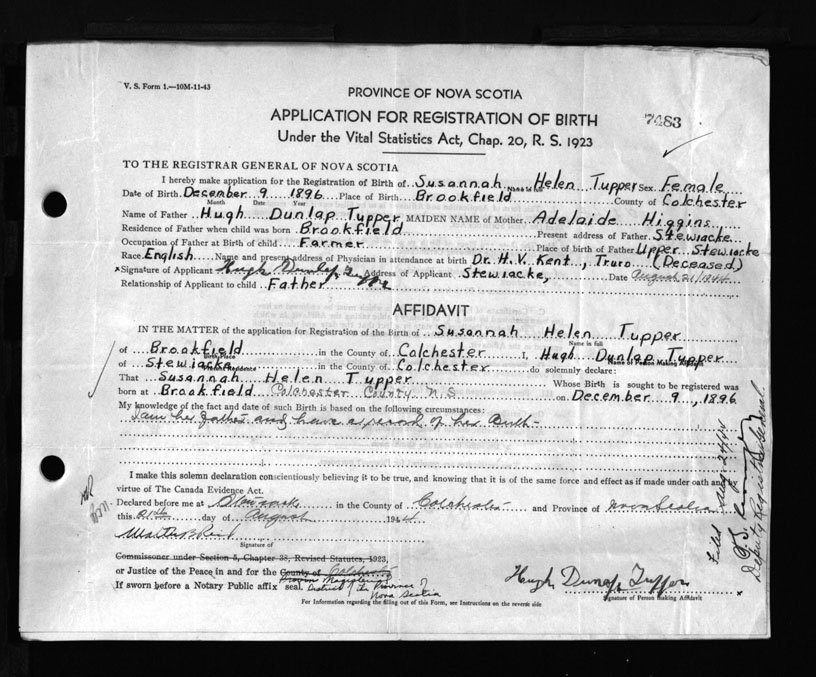 V. S. Form 1.—10M-11-43
PROVINCE OF NOVA SCOTIA
APPLICATION FOR REGISTRATION OF BIRTH
7483
Under the Vital Statistics Act, Chap. 20, R. S. 1923
TO THE REGISTRAR GENERAL OF NOVA SCOTIA
I hereby make application for the Registration of Birth of Susannah Helen Tupper Sex Female
Name in full
Date of Birth December 9 1896 Place of Birth Brookfield County of Colchester
Month Date Year
Name of Father Hugh Dunlap Tupper, MAIDEN NAME of Mother Adelaide Higgins
Residence of Father when child was born Brookfield Present address of Father Stewiacke
Occupation of Father at Birth of child Farmer Place of birth of Father Upper Stewiacke
Race English Name and present address of Physician in attendance at birth Dr. H. V. Kent, Truro (Deceased)
x Signature of Applicant Hugh Dunlap Tupper Address of Applicant Stewiacke, Date August 21/1944
Relationship of Applicant to child Father
AFFIDAVIT
IN THE MATTER of the application for Registration of the Birth of Susannah Helen Tupper
Name in full
of Brookfield in the County of Colchester I, Hugh Dunlap Tupper
Birth Place Name of Person Making Affidavit
of Stewiacke in the County of Colchester do solemnly declare:
That Susannah Helen Tupper Whose Birth is sought to be registered was
born at Brookfield Colchester County N.S on December 9, 1896
My knowledge of the fact and date of such Birth is based on the following circumstances:
I am her father and have a record of her Birth-
I make this solemn declaration conscientiously believing it to be true, and knowing that it is of the same force and effect as if made under oath and by
virtue of The Canada Evidence Act.
Declared before me at in the County of Colchester and Province of Nova Scotia
this 21st day of August 1944
Signature of
Commissoner under Section 5, Chapter 38, Revised Statutes, 1923,
or Justice of the Peace in and for the County of Colchester
If sworn before a Notary Public affix seal. District of The Province of
Nova Scotia
Hugh Dunlap Tupper
Signature of Person Making Affidavit
For Information regarding the filling out of this Form, see Instructions on the reverse side
Filed Aug. 24/44
Deputy Registrar General